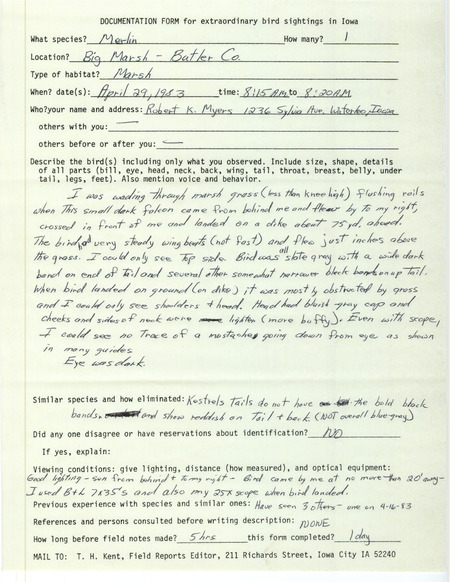 DOCUMENTATION FORM for extraordinary bird sightings in Iowa
What species? Merlin How many? 1
Location? Big Marsh - Butler Co.
Type of habitat? Marsh
When? date(s): April 29, 1983 time: 8:15 AM to 8:20 AM
Who? your name and address: Robert K. Myers 1236 Sylvia Ave. Waterloo, Iowa
others with you: —
others before or after you: —
Describe the bird(s) including only what you observed. Include size, shape, details
of all parts (bill, eye, head, neck, back, wing, tail, throat, breast, belly, under
tail, legs, feet). Also mention voice and behavior.
I was wading through marsh grass (less than knee high) flushing rails
when this small dark falcon came from behind me and flew by to my right,
crossed in front of me and landed on a dike about 75 yd. ahead.
The bird had very steady wing beats (not fast) and flew just inches above
the grass. I could only see top side. Bird was all slate grey with a wide dark
band on end of tail and several other somewhat narrower black bands on up tail.
When bird landed on ground (on dike) it was mostly obstructed by grass
and I could only see shoulders + head. Head had bluish gray cap and
cheeks and sides of neck were lighter (more buffy). Even with scope,
I could see no trace of a mustache going down from eye as shown
in many guides.
Eye was dark.
Similar species and how eliminated: Kestrels tails do not have the bold black
bands and show reddish on tail + back (NOT overall blue-gray)
Did any one disagree or have reservations about identification? NO
If yes, explain:
Viewing conditions: give lighting, distance (how measured), and optical equipment:
Good lighting - sun from behind + to my right - Bird came by me at no more than 20' away -
I used B+L 7X35's and also my 25X scope when bird landed.
Previous experience with species and similar ones: Have seen 3 others - one on 4-16-83
References and persons consulted before writing description: NONE
How long before field notes made? 5 hrs this form completed? 1 day
MAIL TO: T. H. Kent, Field Reports Editor, 211 Richards Street, Iowa City IA 52240